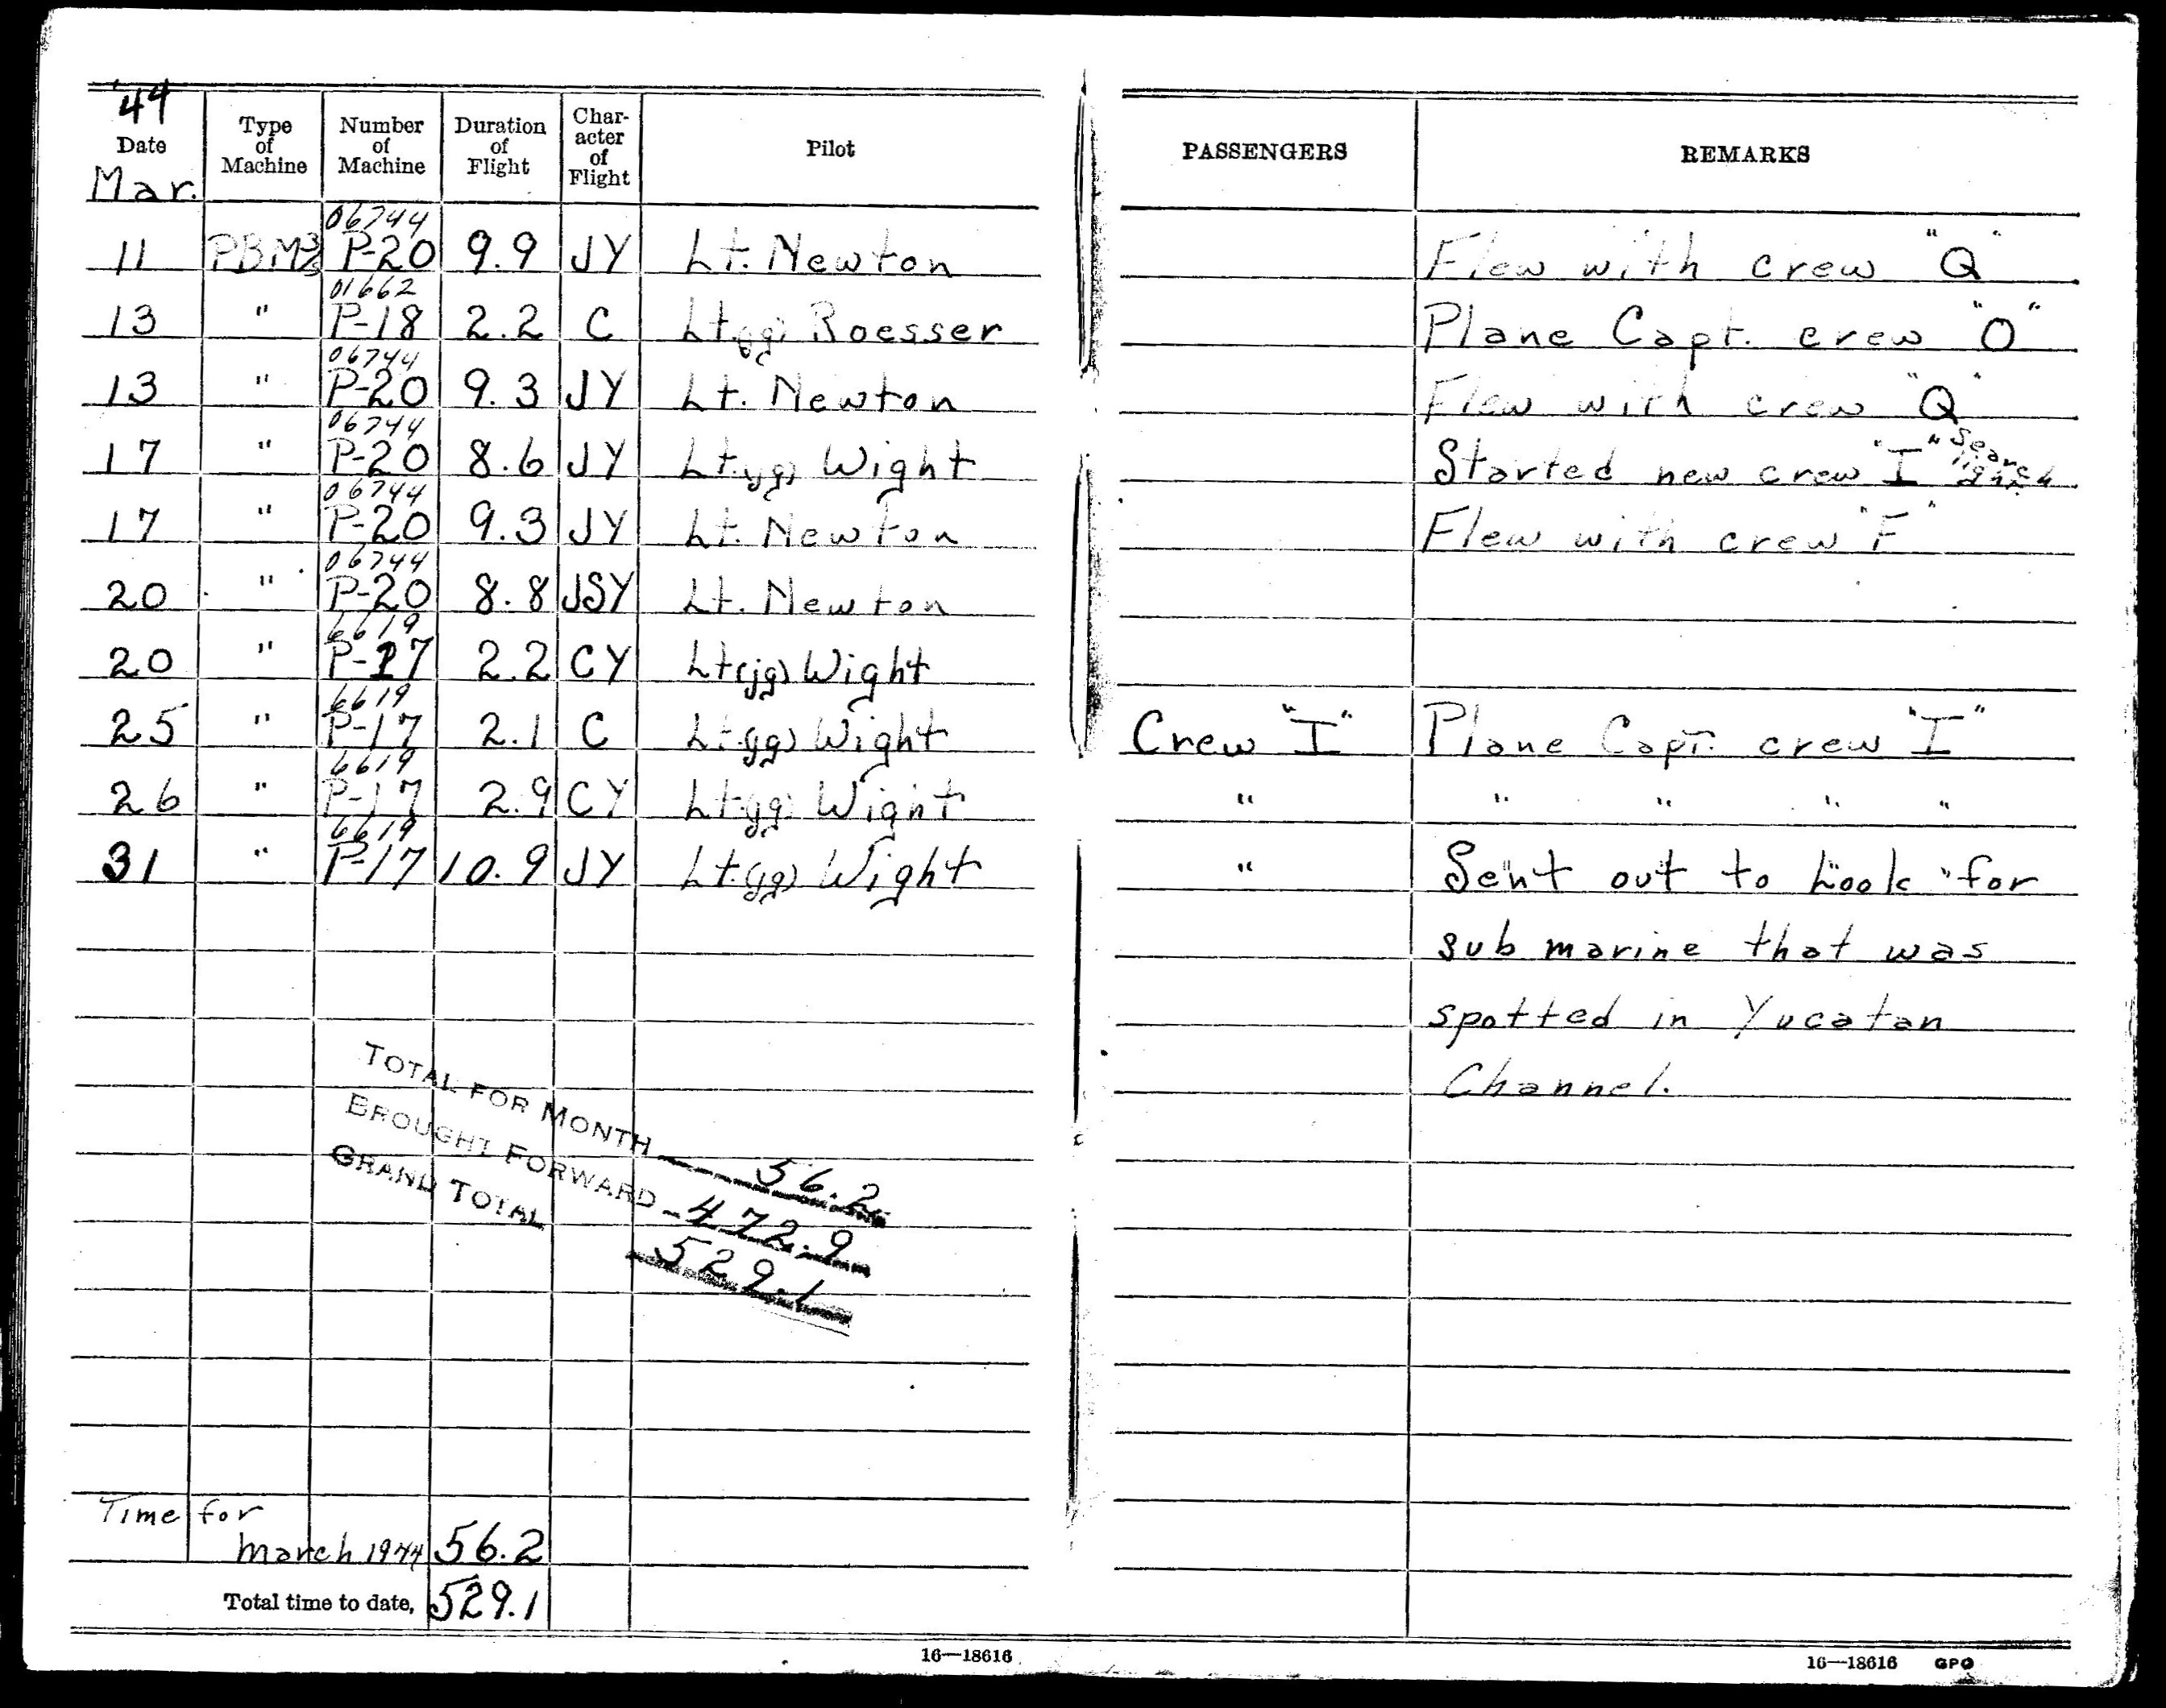 '44
Date Type of Machine Number of Machine Duration of Flight Char-acter of Flight Pilot PASSENGERS REMARKS
Mar.
06744
11 PBM3S P-20 9.9 JY Lt. Newton Flew with crew "Q"
01662
13 " P-18 2.2 C Lt.(jg) Roesser Plane Capt. crew "O"
06744
13 " P-20 9.3 JY Lt. Newton Flew with crew "Q"
06744
17 " P-20 8.6 JY Lt.(jg) Wight Started new crew "I" Search light
06744
17 " P-20 9.3 JY Lt. Newton Flew with crew "F"
06744
20 " P-20 8.8 JSY Lt. Newton
6619
20 " P-17 2.2 CY Lt(jg) Wight
6619
25 " P-17 2.1 C Lt.(jg) Wight Crew "I" Plane Capt. crew "I"
6619
26 " P-17 2.9 CY Lt.(jg) Wight " " " " "
6619
31 " P-17 10.9 JY Lt.(jg) Wight " Sent out to Look for
sub marine that was
spotted in Yucatan
Channel.
TOTAL FOR MONTH 56.2
BROUGHT FORWARD 472.9
GRAND TOTAL 529.1
Time for
march 1944 56.2
Total time to date, 529.1
16—18616 16—18616 GPO